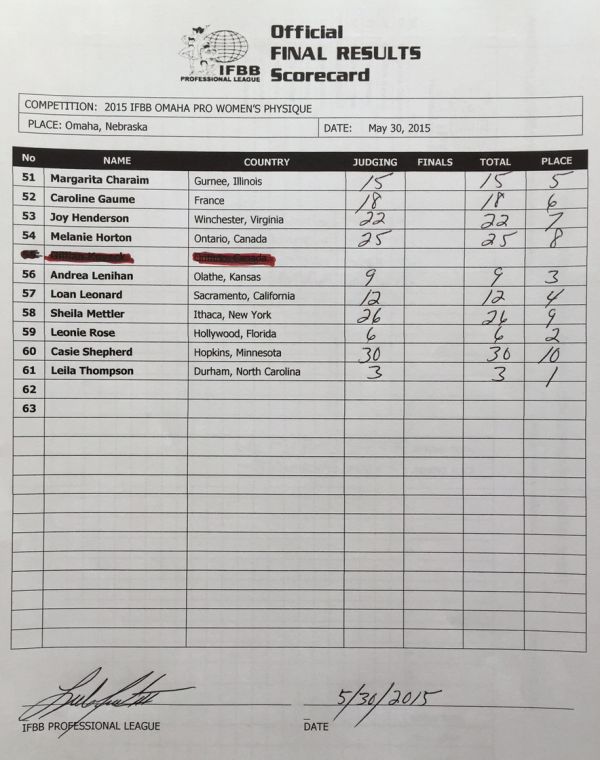 Official
FINAL RESULTS
Scorecard
IFBB
PROFESSIONAL LEAGUE
COMPETITION: 2015 IFBB OMAHA PRO WOMEN'S PHYSIQUE
PLACE: Omaha, Nebraska DATE: May 30, 2015
No NAME COUNTRY JUDGING FINALS TOTAL PLACE
51 Margarita Charaim Gurnee, Illinois 15 15 5
52 Caroline Gaume France 18 18 6
53 Joy Henderson Winchester, Virginia 22 22 7
54 Melanie Horton Ontario, Canada 25 25 8
56 Andrea Lenihan Olathe, Kansas 9 9 3
57 Loan Leonard Sacramento, California 12 12 4
58 Sheila Mettler Ithaca, New York 26 26 9
59 Leonie Rose Hollywood, Florida 6 6 2
60 Casie Shepherd Hopkins, Minnesota 30 30 10
61 Leila Thompson Durham, North Carolina 3 3 1
62
63
5/30/2015
IFBB PROFESSIONAL LEAGUE DATE